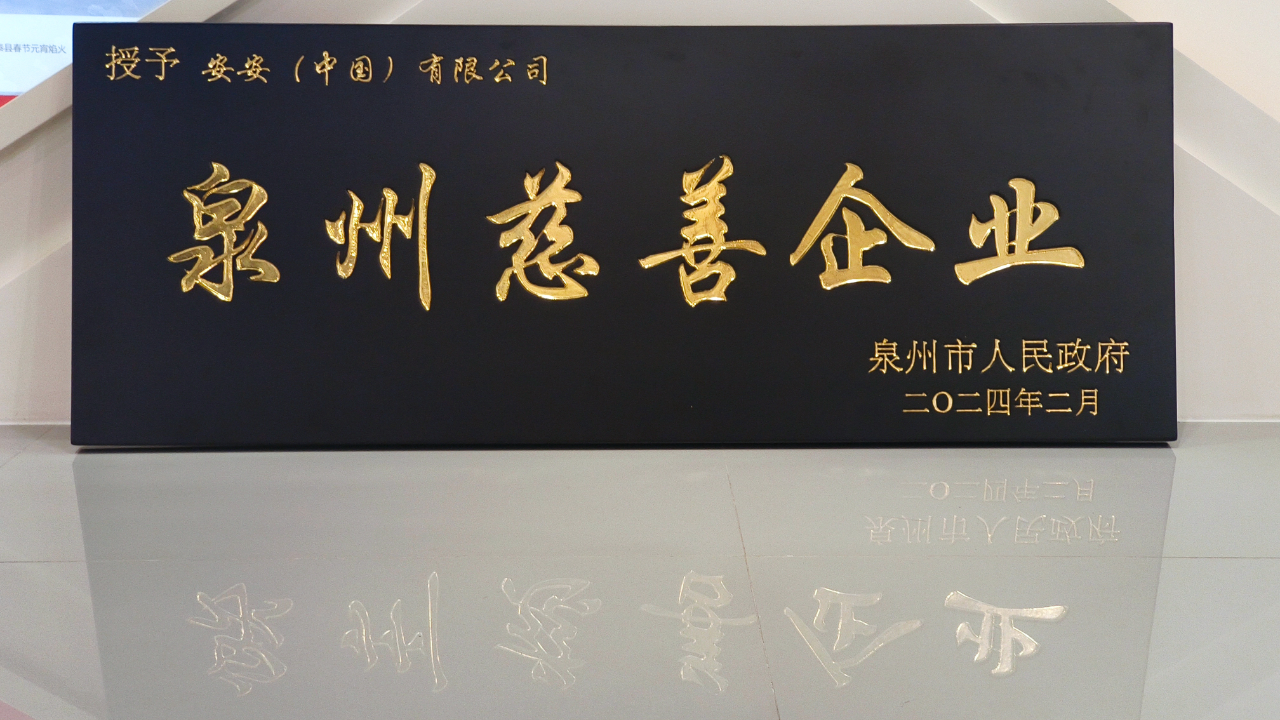 授予 安安（中国）有限公司
泉州慈善企业
泉州市人民政府
二〇二四年二月
县春节元宵焰火